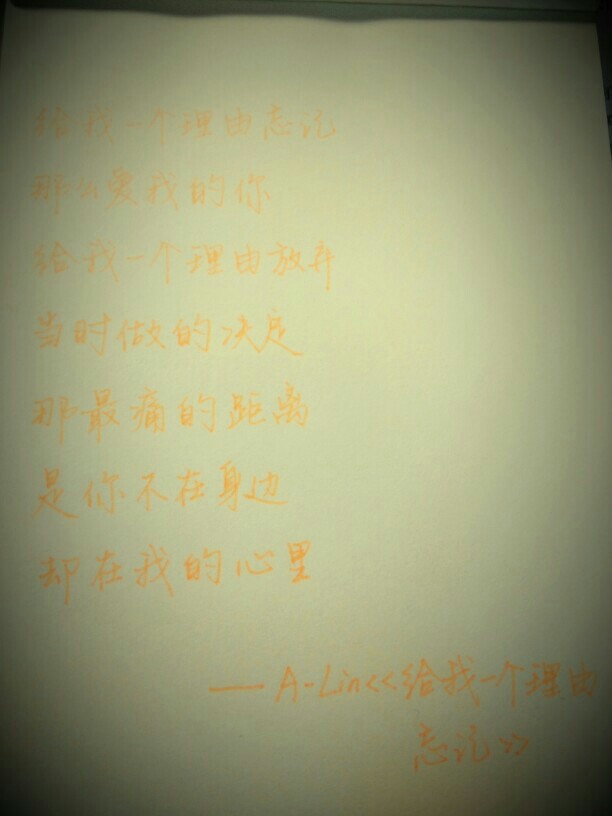 给我一个理由忘记
那么爱我的你
给我一个理由放弃
当时做的决定
那最痛的距离
是你不在身边
却在我的心里
——A-Lin<<给我一个理由
忘记>>